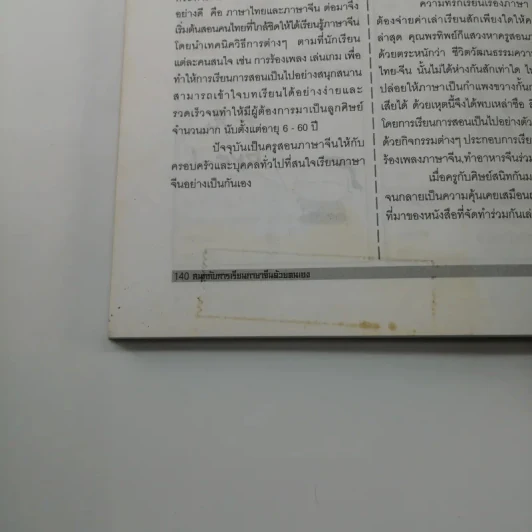 อย่างดี คือ ภาษาไทยและภาษาจีน ต่อมาจึง
เริ่มต้นสอนคนไทยที่ใกล้ชิดให้ได้เรียนรู้ภาษาจีน
โดยนำเทคนิควิธีการต่างๆ ตามที่นักเรียน
แต่ละคนสนใจ เช่น การร้องเพลง เล่นเกม เพื่อ
ทำให้การเรียนการสอนเป็นไปอย่างสนุกสนาน
สามารถเข้าใจบทเรียนได้อย่างง่ายและ
รวดเร็วจนทำให้มีผู้ต้องการมาเป็นลูกศิษย์
จำนวนมาก นับตั้งแต่อายุ 6 - 60 ปี
ปัจจุบันเป็นครูสอนภาษาจีนให้กับ
ครอบครัวและบุคคลทั่วไปที่สนใจเรียนภาษา
จีนอย่างเป็นกันเอง
ความที่รักเรียนเรื่องภาษา
ต้องจ่ายค่าเล่าเรียนสักเพียงใดให้
ล่าสุด คุณพรทิพย์ก็แสวงหาครูสอน
ด้วยตระหนักว่า ชีวิตวัฒนธรรมความ
ไทย-จีน นั้นไม่ได้ห่างกันสักเท่าใด
ปล่อยให้ภาษาเป็นกำแพงขวางกั้น
เสียได้ ด้วยเหตุนี้จึงได้พบเหล่าซือ
โดยการเรียนการสอนเป็นไปอย่างตัว
ด้วยกิจกรรมต่างๆ ประกอบการเรีย
ร้องเพลงภาษาจีน,ทำอาหารจีนร่วม
เมื่อครูกับศิษย์สนิทกันม
จนกลายเป็นความคุ้นเคยเสมือน
ที่มาของหนังสือที่จัดทำร่วมกันเล่
140 สนุกกับการเรียนภาษาจีนด้วยตนเอง